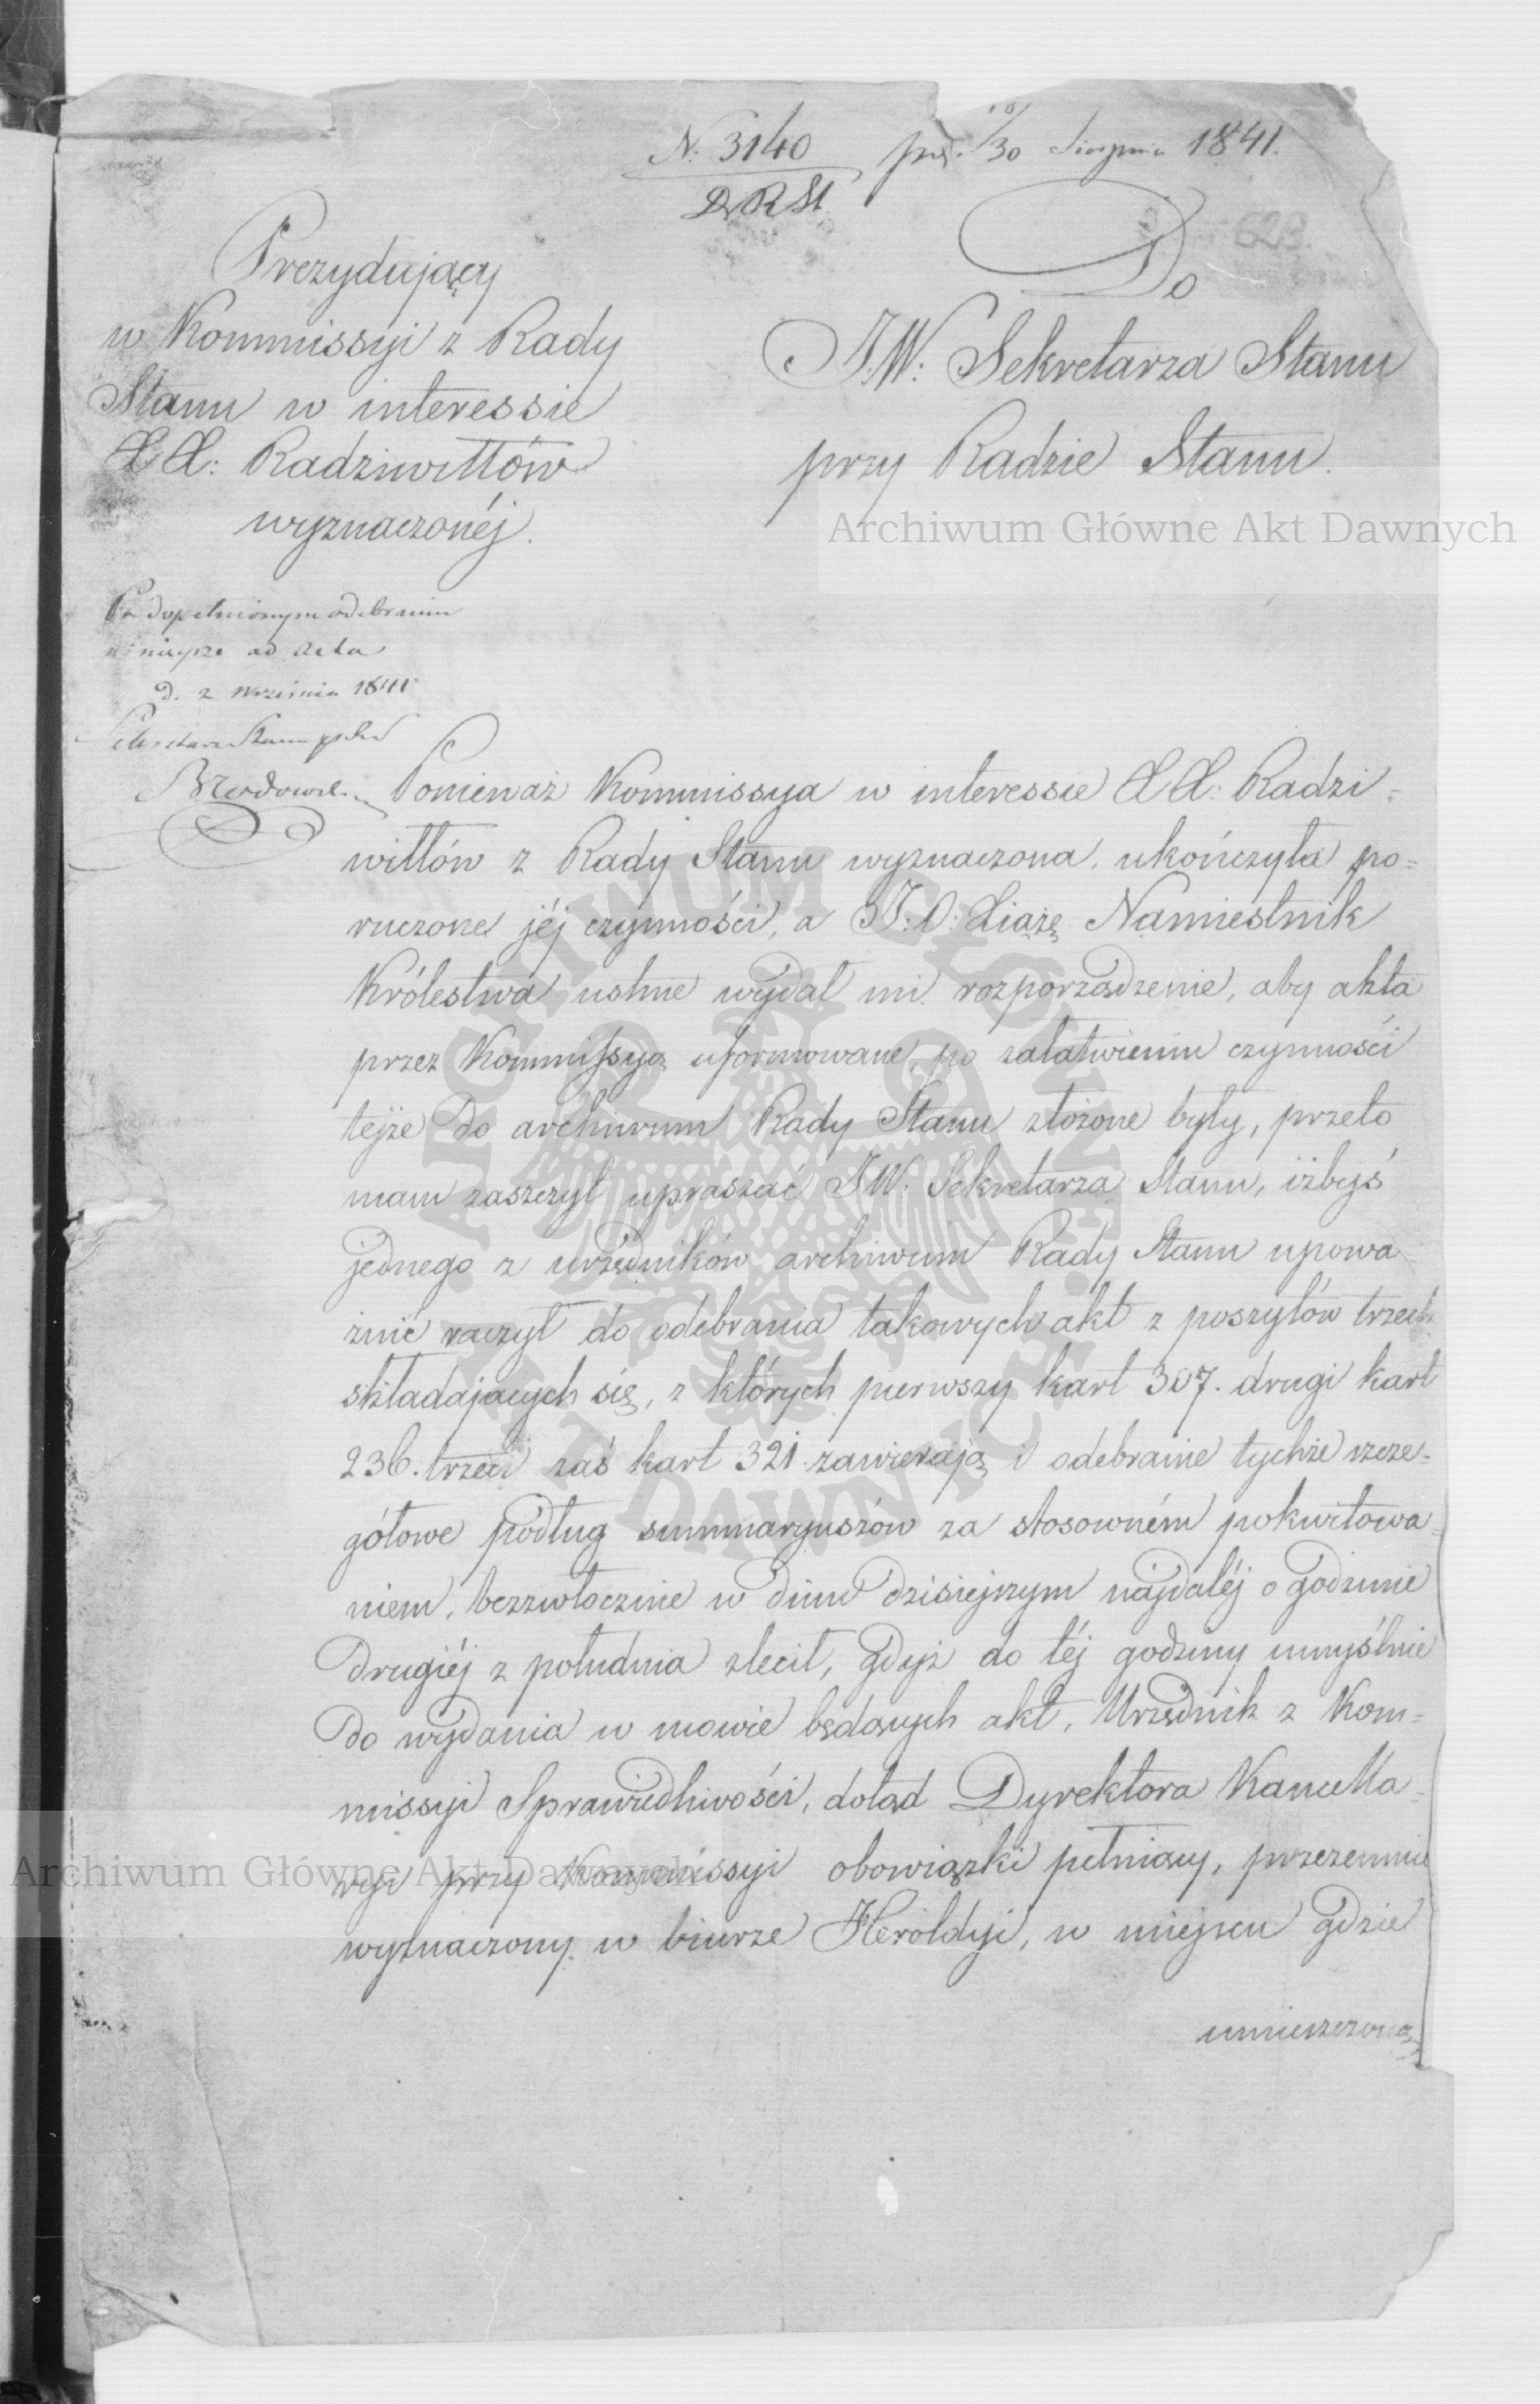 N. 3140
D R St.
30 Sierpnia 1841.
629.
Prezydujący
w Kommissyi z Rady
Stanu w interessie
XX: Radziwiłłów
wyznaczonéj.
Do
J.W: Sekretarza Stanu
przy Radzie Stanu.
Archiwum Główne Akt Dawnych
Po dopełnionym odebraniu
niniejsze ad acta
d. 2 Września 1841
Sekretarz Stanu
Ponieważ Kommissya w interessie XX: Radzi=
wiłłów z Rady Stanu wyznaczona, ukończyła po=
ruczone jéj czynności, a J:O: Xiążę Namiestnik
Królestwa ustnie wydał mi rozporządzenie, aby akta
przez Kommissyą uformowane po załatwieniu czynności
tejże do archiwum Rady Stanu złożone były, przeto
mam zaszczyt upraszać JW: Sekretarza Stanu, iżbyś
jednego z urzędników archiwum Rady Stanu upowa=
żnić raczył do odebrania takowych akt z poszytów trzech
składających się, z których pierwszy kart 307. drugi kart
236. trzeci zaś kart 321. zawierają i odebranie tychże szcze=
gółowe podług summaryuszów za stosowném pokwitowa=
niem, bezzwłocznie w dniu dzisiejszym najdaléj o godzinie
drugiéj z południa zlecił, gdyż do téj godziny umyślnie
do wydania w mowie będących akt, Urzędnik z Kom=
missyi Sprawiedliwości, dotąd Dyrektora Kancella=
ryi przy Kommissyi obowiązki pełniący, przezemnie
wyznaczony w biurze Heroldyi, w miejscu gdzie
umieszczoną
Archiwum Główne Akt Dawnych
ARCHIWUM GŁÓWNE AKT DAWNYCH